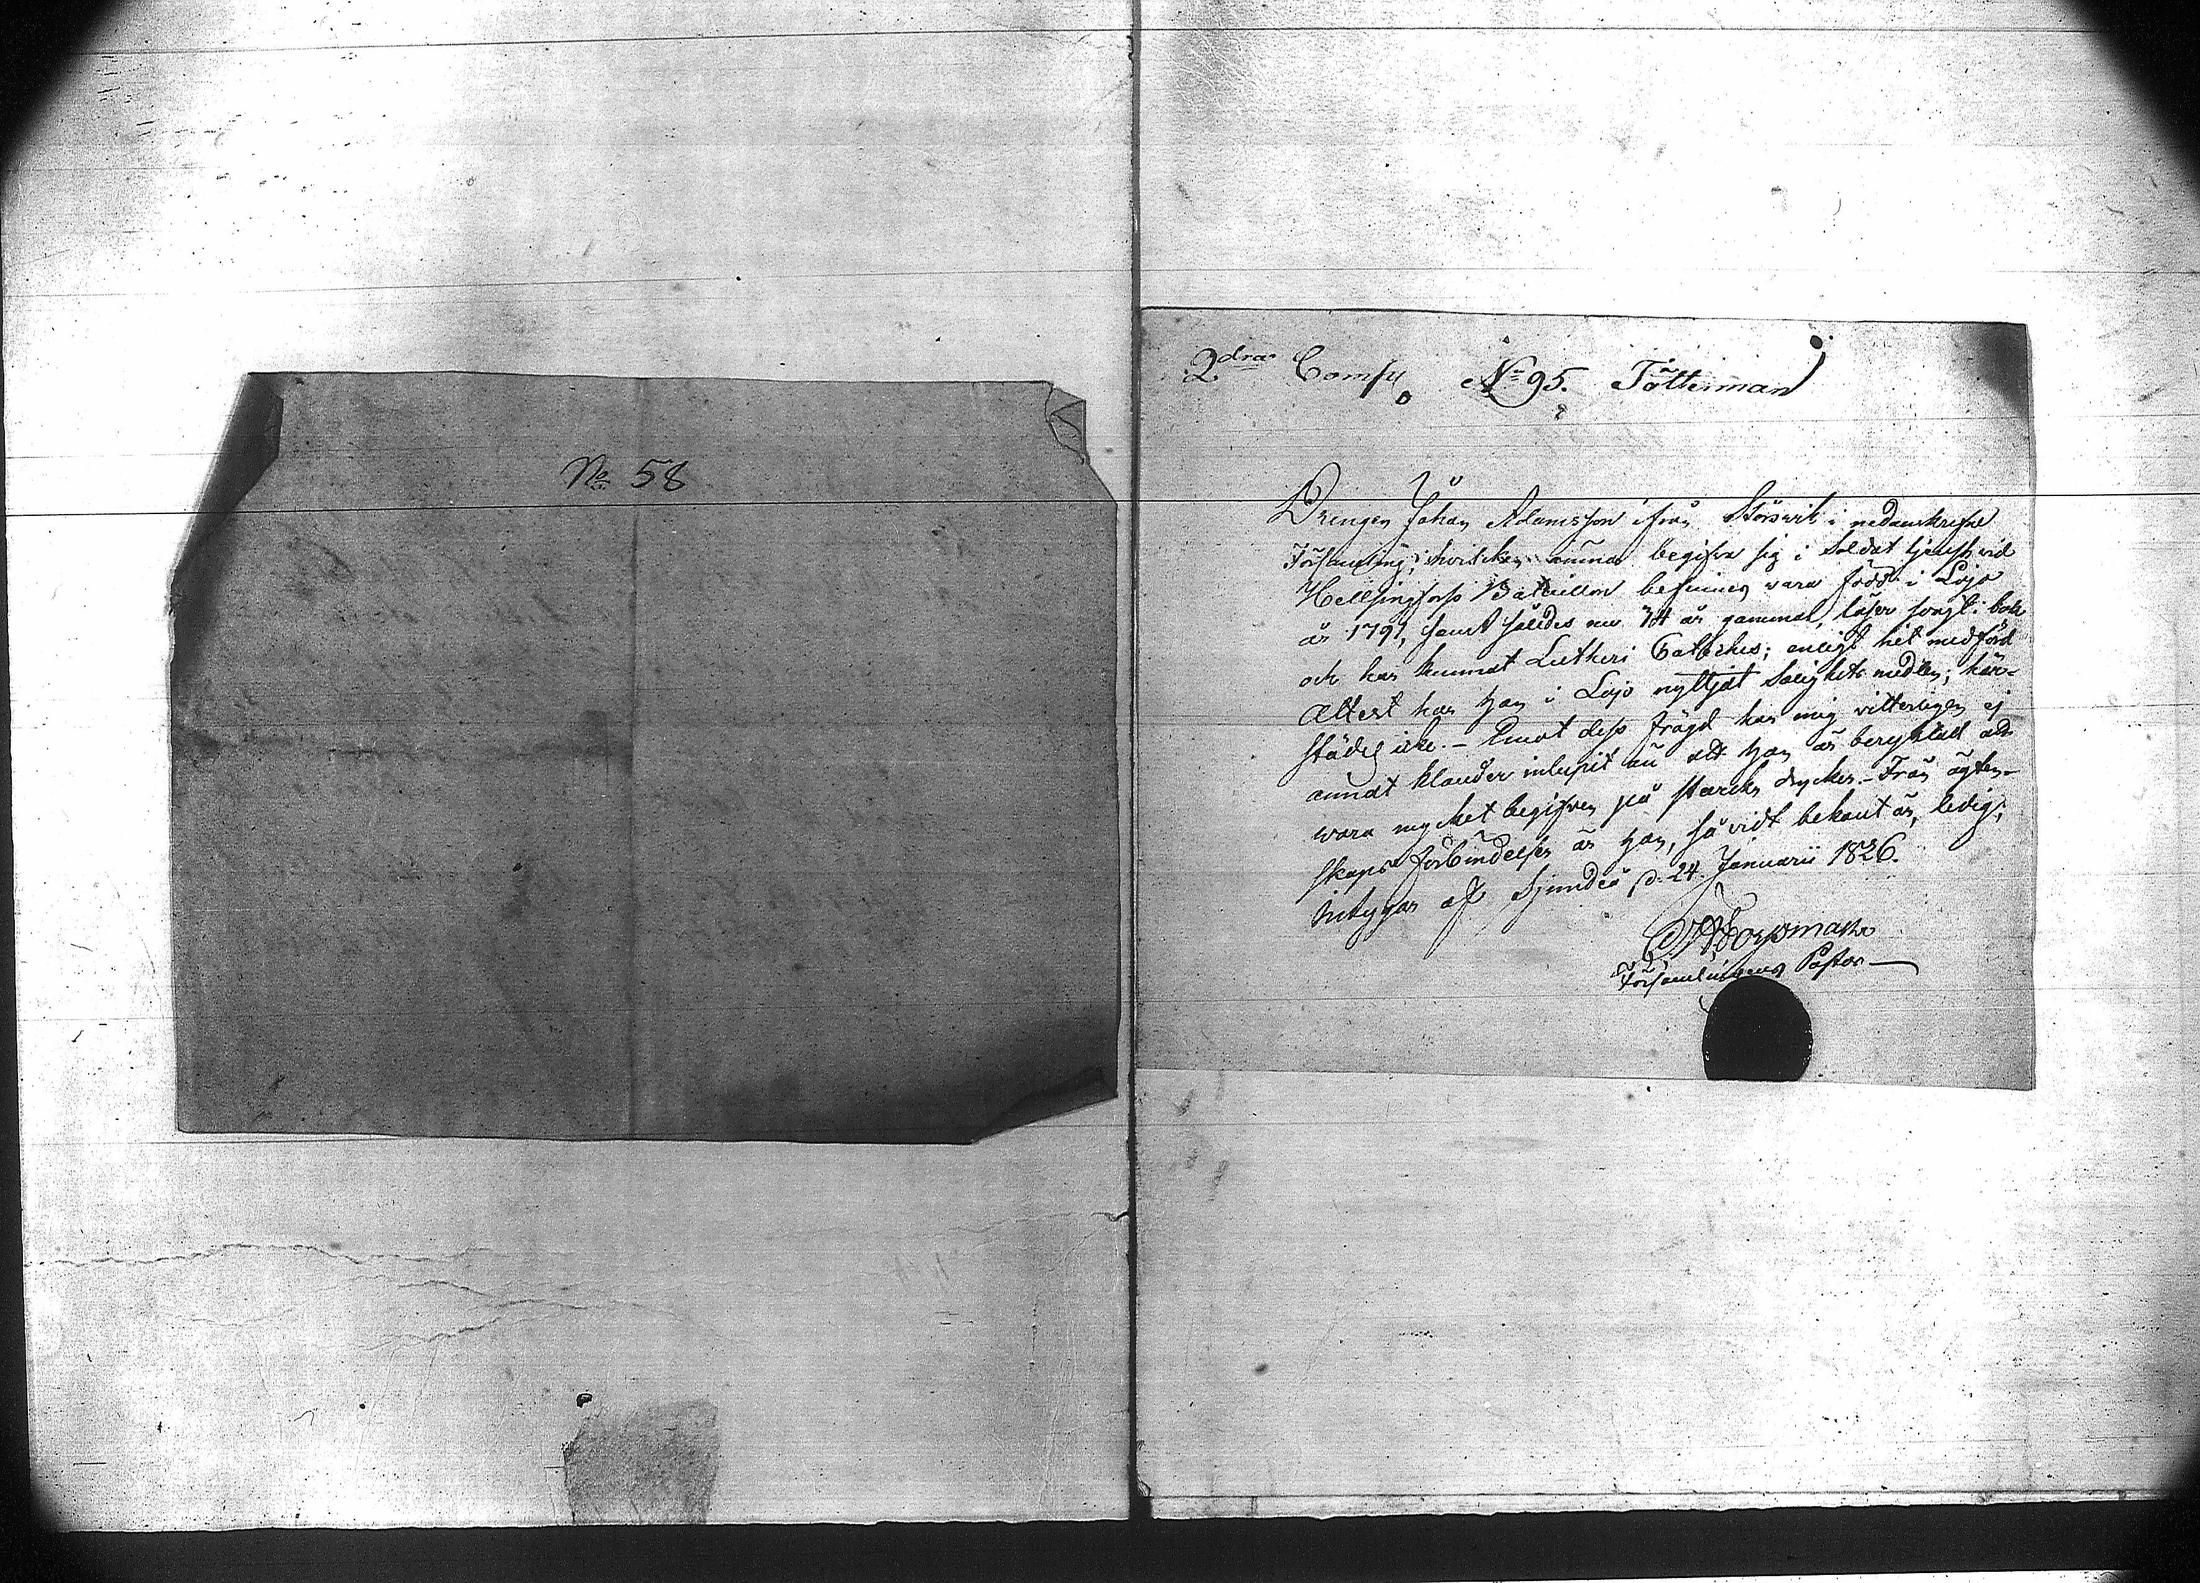 No 58
2dra Compy No 95. Tötterman
Drengen Johan Adamsson ifrån Störsvik i nedanskrefne
Församling, hvilken ämnar begifva sig i Soldat tjenst vid
Hellsingfors Bataillon befinnes vara född i Lojo
år 1791, samt således nu 34 år gammal, läser svagt i bok
och har kunnat Lutheri Cateches; enligt hit medförd
Attest har han i Lojo nyttjat Salighets medlen; här-
städes icke. – Emot dess frägd har mig vitterligen ej
annat klander inlupit än att han är beryktad att
vara mycket begifven på starcka drycker. – Från ägten-
skaps förbindelser är han, så vidt bekant är, ledig;
intygar af Sjundeå d. 24. Januarii 1826.
Forsman
Församlingens Pastor